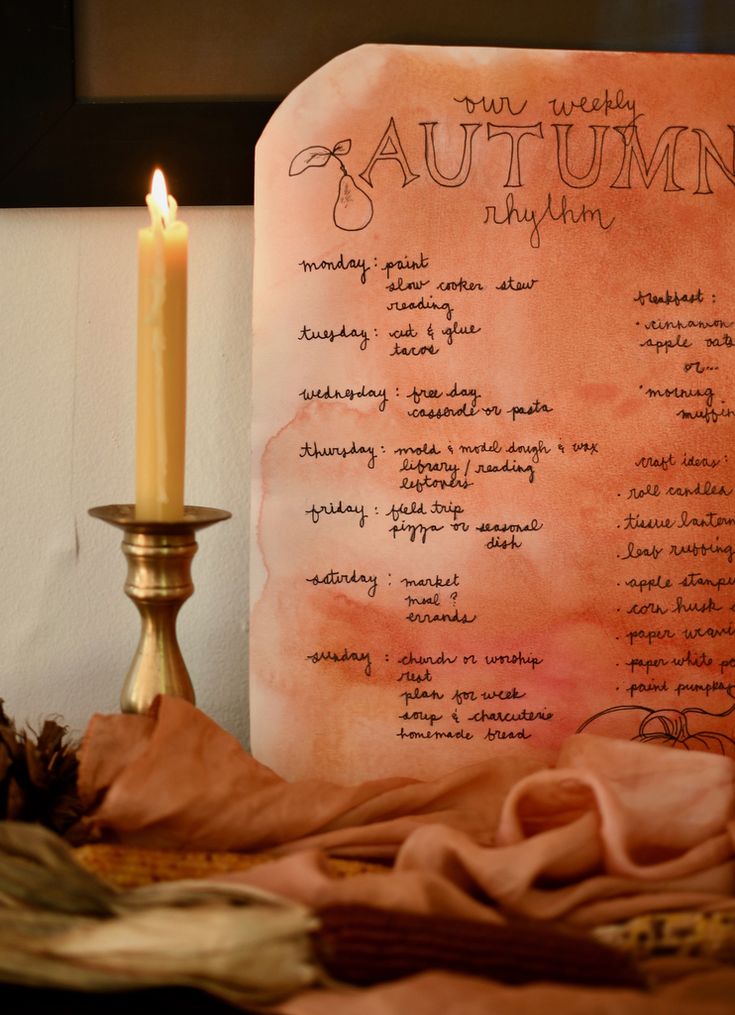 our weekly
AUTUMN
rhythm
monday : paint
slow cooker stew
reading
tuesday : cut & glue
tacos
wednesday : free day
casserole or pasta
thursday : mold & model dough & wax
library / reading
leftovers
friday : field trip
pizza or seasonal
dish
saturday : market
meal ?
errands
sunday : church or worship
rest
plan for week
soup & charcuterie
homemade bread
breakfast :
• cinnamon
apple oats
or...
• morning
muffin
craft ideas :
• roll candles
• tissue lantern
• leaf rubbing
• apple stamp
• corn husk
• paper weavi
• paper white
• paint pumpk